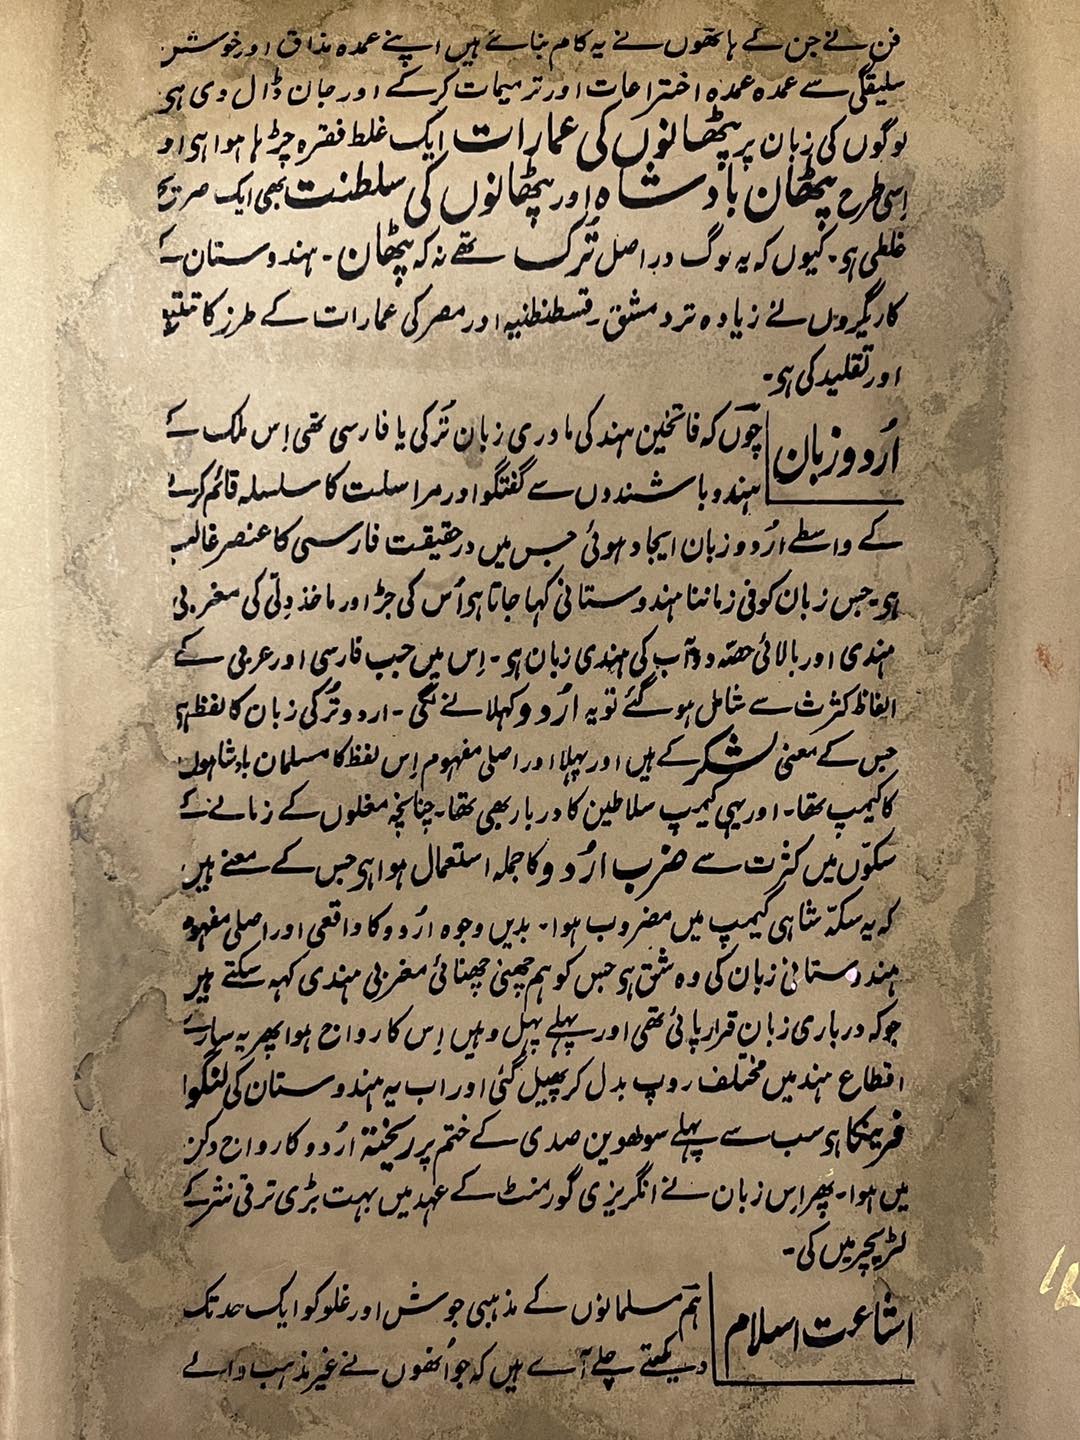 فن نے جن کے ہاتھوں نے یہ کام بنائے ہیں اپنے عمدہ مذاق اور خوش
سلیقگی سے عمدہ عمدہ اختراعات اور ترمیمات کرکے اور جان ڈال دی ہی
لوگوں کی زبان پر پٹھانوں کی عمارات ایک غلط فقرہ چڑہا ہوا ہی او
اِسی طرح پٹھان بادشاہ اور پٹھانوں کی سلطنت بھی ایک صریح
غلطی ہی۔ کیوں کہ یہ لوگ دراصل تُرک تھے نہ کہ پٹھان۔ ہندوستان کے
کاریگروں نے زیادہ تر دمشق۔ قسطنطنیہ اور مصر کی عمارات کے طرز کا تتبع
اور تقلید کی ہی۔
اُردو زبان
چوں کہ فاتحین ہند کی مادری زبان تُرکی یا فارسی تھی اِس ملک کے
ہندو باشندوں سے گفتگو اور مراسلت کا سلسلہ قائم کرنے
کے واسطے اُردو زبان ایجاد ہوئی جس میں درحقیقت فارسی کا عنصر غالب
ہی۔ جس زبان کو فی زماننا ہندوستانی کہا جاتا ہی اُس کی جڑ اور ماخذ دِلّی کی مغربی
ہندی اور بالائی حصّہ دوآب کی ہندی زبان ہی۔ اِس میں جب فارسی اور عربی کے
الفاظ کثرت سے شامل ہوگئے تو یہ اُردو کہلانے لگی۔ اردو تُرکی زبان کا لفظ ہی
جس کے معنی لشکر کے ہیں اور پہلا اور اصلی مفہوم اِس لفظ کا مسلمان بادشاہوں
کا کیمپ تھا۔ اور یہی کیمپ سلاطین کا دربار بھی تھا۔ چنانچہ مغلوں کے زمانے کے
سکّوں میں کثرت سے ضرب اُردو کا جملہ استعمال ہوا ہی جس کے معنے ہیں
کہ یہ سکّہ شاہی کیمپ میں مضروب ہوا۔ بدیں وجوہ اُردو کا واقعی اور اصلی مفہوم
ہندوستانی زبان کی وہ شق ہی جس کو ہم چھنی چھنائی مغربی ہندی کہہ سکتے ہیں
جو کہ درباری زبان قرار پائی تھی اور پہلے پہل وہیں اِس کا رواج ہوا پھر یہ سارے
اقطاع ہند میں مختلف روپ بدل کر پھیل گئی اور اب یہ ہندوستان کی لنگوا
فرینکا ہی سب سے پہلے سولھویں صدی کے ختم پر ریختۃ اُردو کا رواج دکن
میں ہوا۔ پھر اِس زبان نے انگریزی گورمنٹ کے عہد میں بہت بڑی ترقی نثر کے
لٹریچر میں کی۔
اشاعت اسلام
ہم مسلمانوں کے مذہبی جوش اور غلو کو ایک حد تک
دیکھتے چلے آے ہیں کہ جو اُنھوں نے غیر مذہب والے